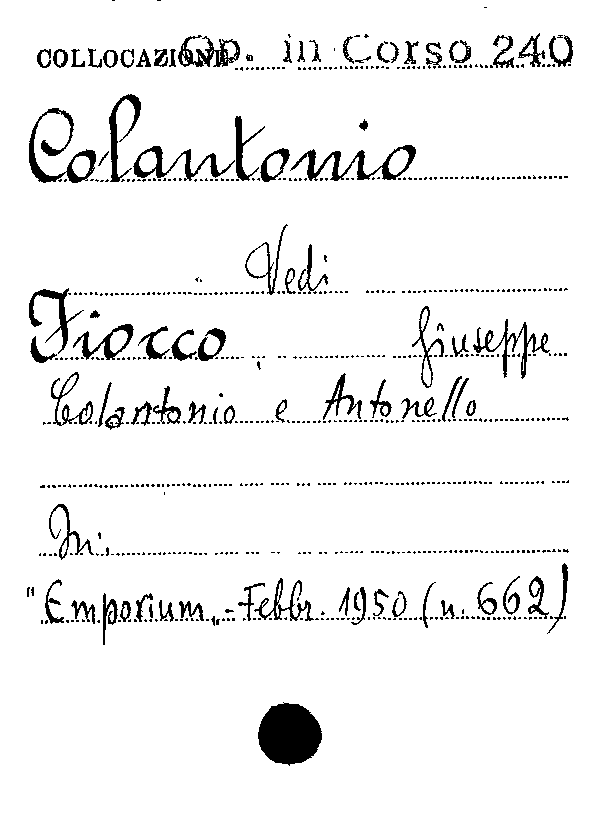 COLLOCAZIONE Op. in Corso 240
Colantonio
Vedi
Fiocco Giuseppe
Colantonio e Antonello
In:
"Emporium„ - Febbr. 1950 (n. 662)